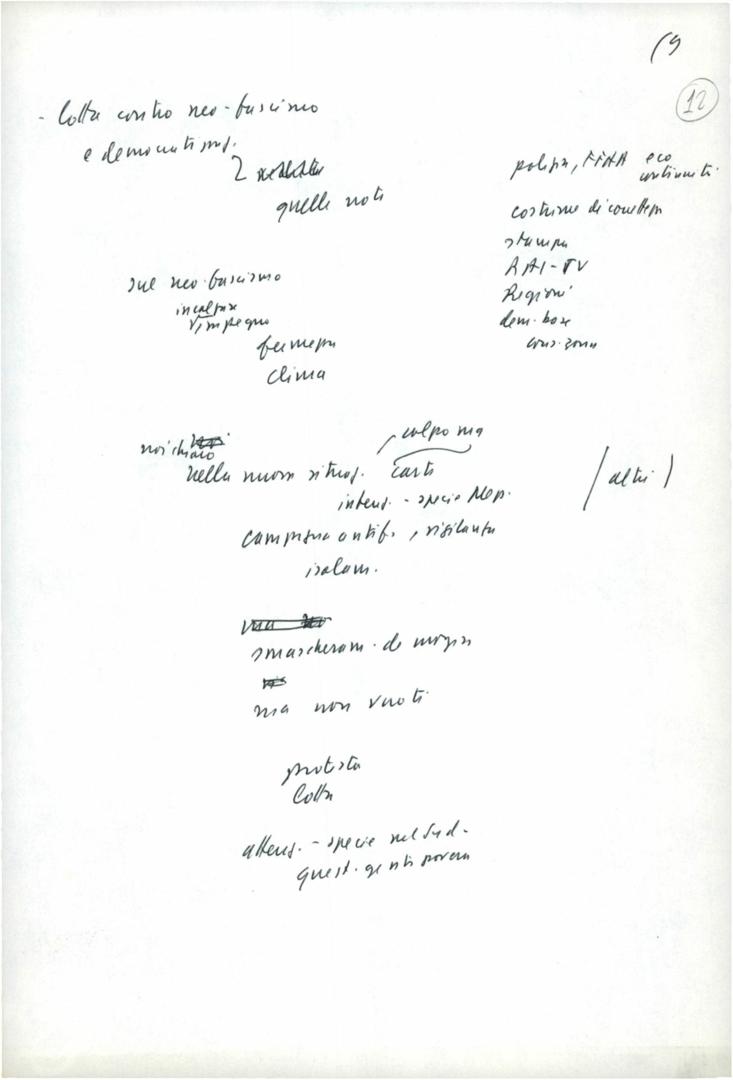 19
12
- lotta contro neo-fascismo
e democratizzaz.
2
quelle note
polizia, FFAA eco
continuiti
costume di correttezza
stampa
RAI-TV
Regioni
dem. base
cons. zona
sul neo-fascismo
incalzare
l'impegno
fermezza
clima
noi chiaro
nella nuova situaz. carte
colpo ma
intens. - specie Mezz.
(altri)
campagna antif., vigilanza
isolam.
smascheram. demagogia
ma non vuoti
protesta
lotta
attenz. - specie nel Sud -
quest. gente povera